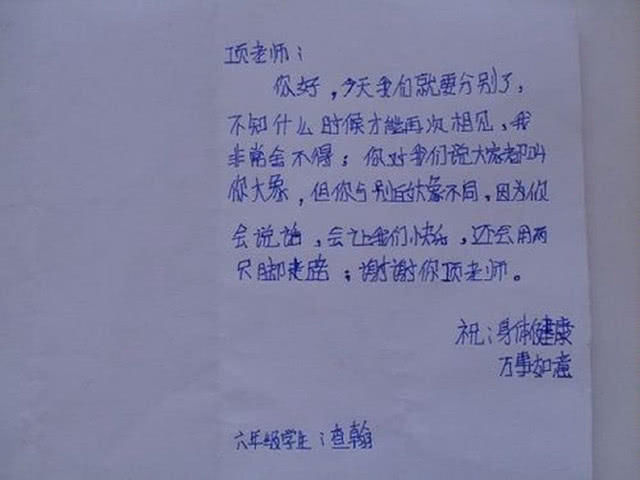 项老师：
你好，今天我们就要分别了，
不知什么时候才能再次相见，我
非常舍不得；你对我们说大家都叫
你大象，但你与别的大象不同，因为你
会说话，会让我们快乐，还会用两
只脚走路；谢谢你项老师。
祝：身体健康
万事如意
六年级学生：查翰